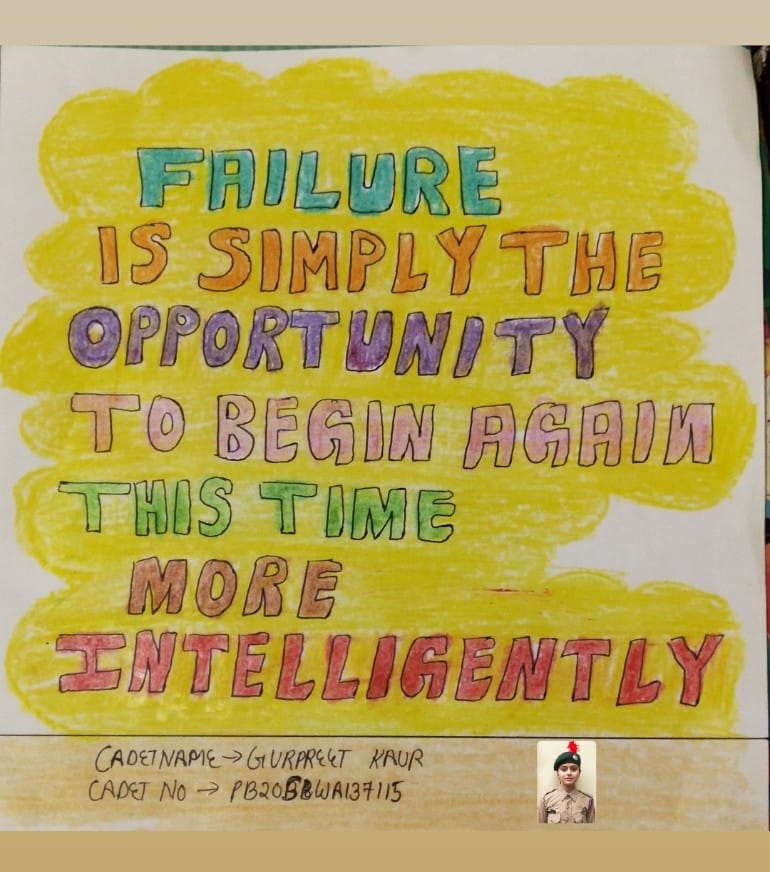 FAILURE
IS SIMPLY THE
OPPORTUNITY
TO BEGIN AGAIN
THIS TIME
MORE
INTELLIGENTLY
CADET NAME → GURPREET KAUR
CADET NO →